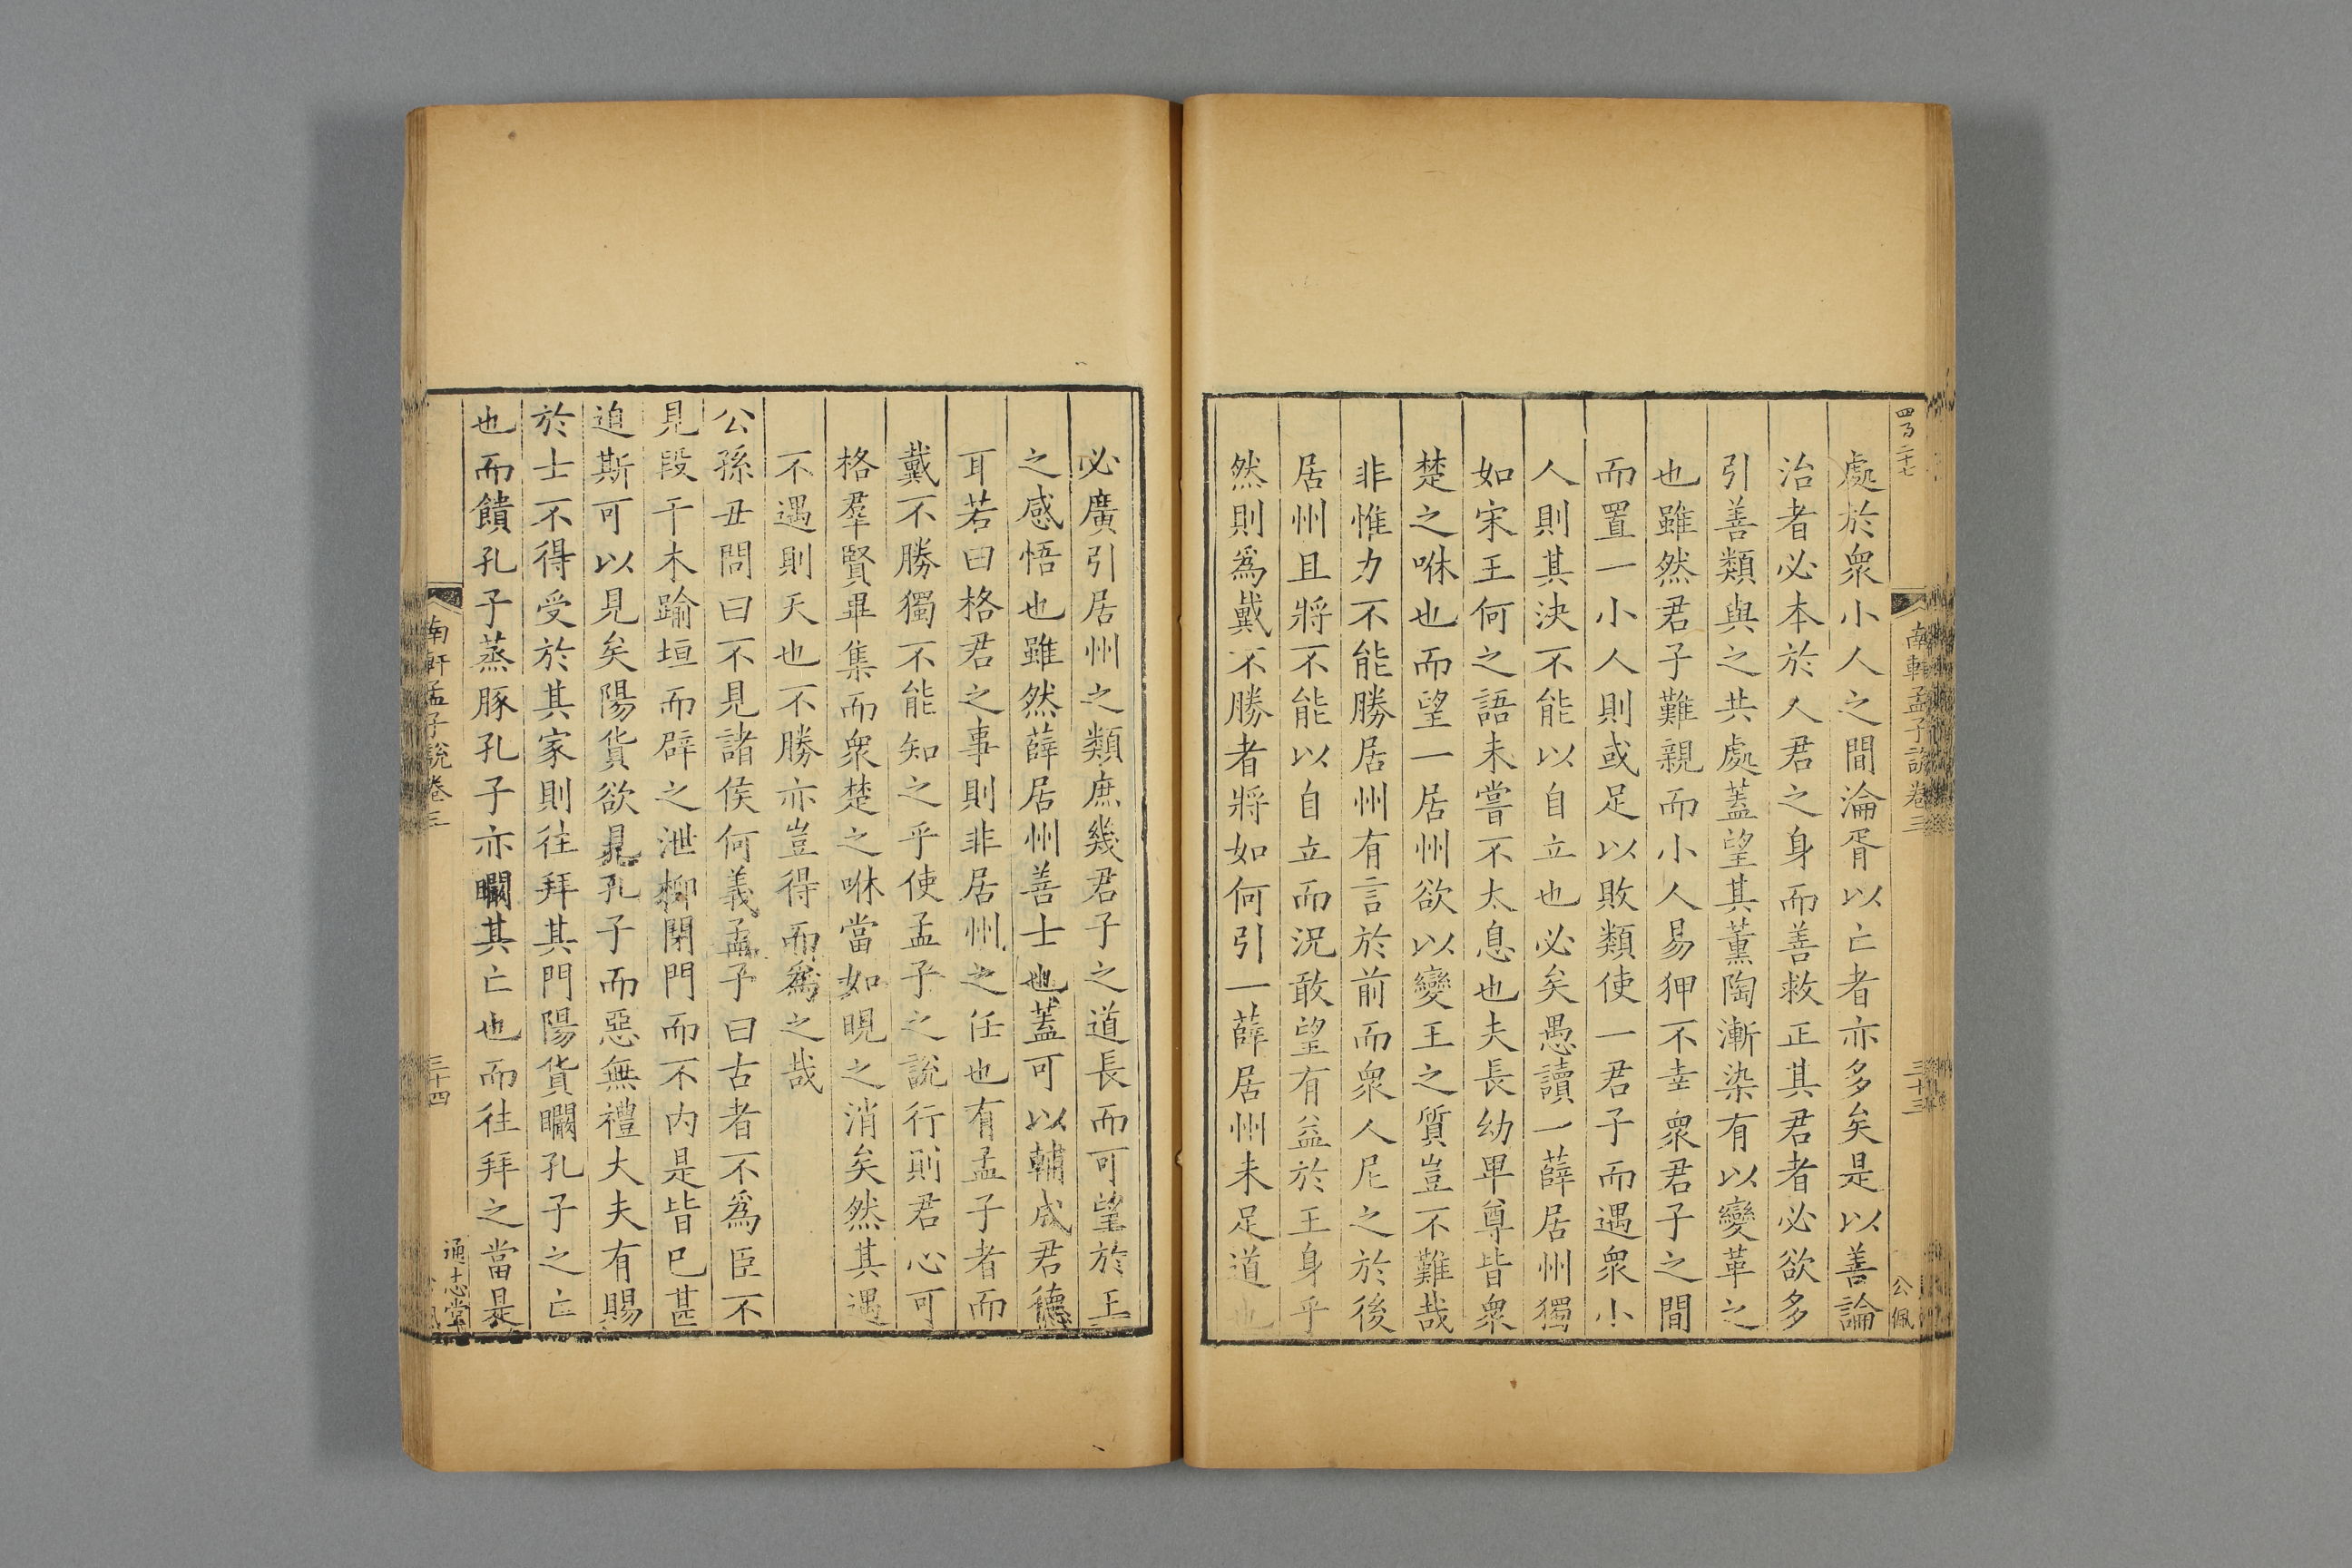 四百二十七
南軒孟子說卷三
三十三
公佩
處於衆小人之間淪胥以亡者亦多矣是以善論
治者必本於人君之身而善救正其君者必欲多
引善類與之共處蓋望其薰陶漸染有以變革之
也雖然君子難親而小人易狎不幸衆君子之間
而置一小人則或足以敗類使一君子而遇衆小
人則其決不能以自立也必矣愚讀一薛居州獨
如宋王何之語未嘗不太息也夫長幼卑尊皆衆
楚之咻也而望一居州欲以變王之質豈不難哉
非惟力不能勝居州有言於前而衆人尼之於後
居州且將不能以自立而況敢望有益於王身乎
然則爲戴不勝者將如何引一薛居州未足道也
必廣引居州之類庶幾君子之道長而可望於王
之感悟也雖然薛居州善士也蓋可以輔成君德
耳若曰格君之事則非居州之任也有孟子者而
戴不勝獨不能知之乎使孟子之說行則君心可
格羣賢畢集而衆楚之咻當如晛之消矣然其遇
不遇則天也不勝亦豈得而爲之哉
公孫丑問曰不見諸侯何義孟子曰古者不爲臣不
見段干木踰垣而辟之泄柳閉門而不內是皆已甚
迫斯可以見矣陽貨欲見孔子而惡無禮大夫有賜
於士不得受於其家則往拜其門陽貨矙孔子之亡
也而饋孔子蒸豚孔子亦矙其亡也而往拜之當是
南軒孟子說卷三
三十四
通志堂